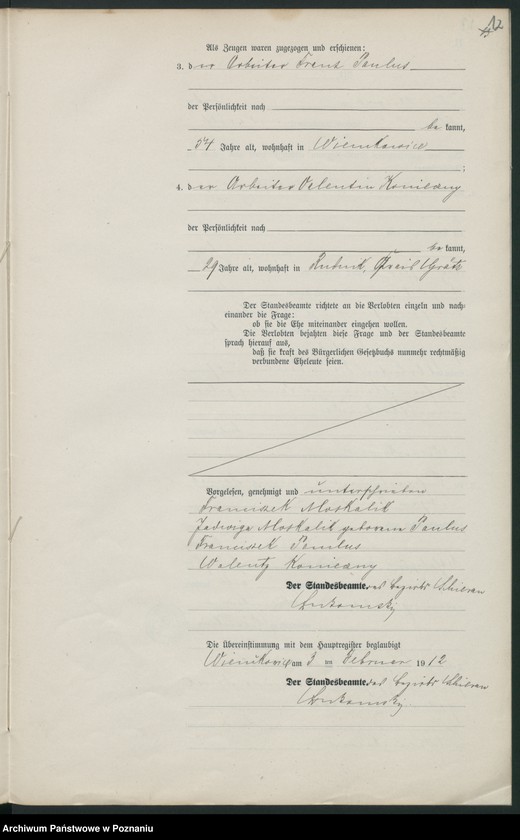 12
Als Zeugen waren zugezogen und erschienen:
3. der Arbeiter Franz Paulus
der Persönlichkeit nach
be kannt,
54 Jahre alt, wohnhaft in Wiemkowice
;
4. der Arbeiter Valentin Konieczny
der Persönlichkeit nach
be kannt,
29 Jahre alt, wohnhaft in Kreis Grätz
Der Standesbeamte richtete an die Verlobten einzeln und nach-
einander die Frage:
ob sie die Ehe miteinander eingehen wollen.
Die Verlobten bejahten diese Frage und der Standesbeamte
sprach hierauf aus,
daß sie kraft des Bürgerlichen Gesetzbuchs nunmehr rechtmäßig
verbundene Eheleute seien.
Vorgelesen, genehmigt und unterschrieben
Franciszek Moskalik
Jadwiga Moskalik geborene Paulus
Franciszek Paulus
Walenty Konieczny
Der Standesbeamte. des Bezirks
Die Übereinstimmung mit dem Hauptregister beglaubigt
am 3 ten Februar 1912
Der Standesbeamte. des Bezirks
Archiwum Państwowe w Poznaniu